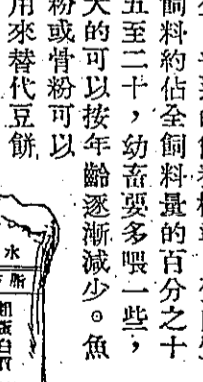 飼料約佔全飼料量的百分之十
五至二十，幼畜要多喂一些；
大的可以按年齡逐漸減少。魚
粉或骨粉可以
用來替代豆餅。
水
脂
粗蛋白質